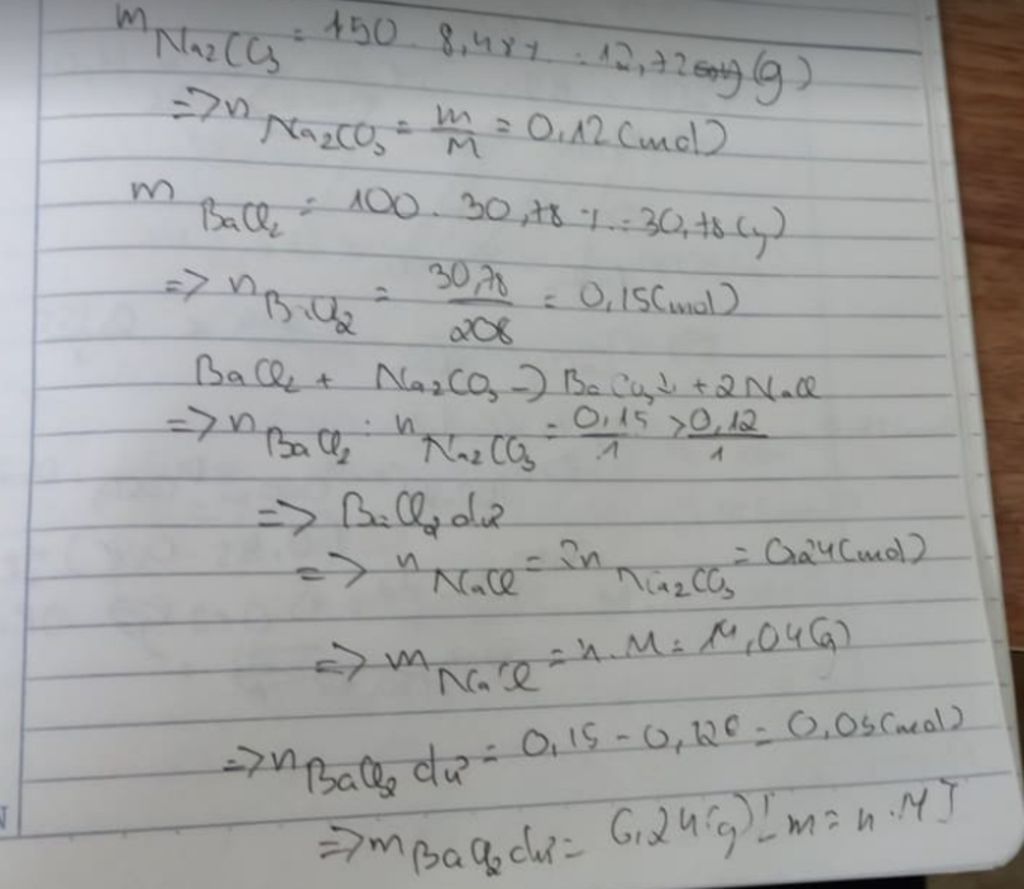 m Na2CO3 = 150 . 8,48% = 12,72 (g)
=> n Na2CO3 = m/M = 0,12 (mol)
m BaCl2 = 100 . 30,78 % = 30,78 (g)
=> n BaCl2 = 30,78/208 = 0,15 (mol)
BaCl2 + Na2CO3 -> BaCO3↓ + 2NaCl
=> n BaCl2 : n Na2CO3 = 0,15/1 > 0,12/1
=> BaCl2 dư
=> n NaCl = 2n Na2CO3 = 0,24 (mol)
=> m NaCl = n.M = 14,04 (g)
=> n BaCl2 dư = 0,15 - 0,12 = 0,03 (mol)
=> m BaCl2 dư = 6,24 (g) [m = n.M]